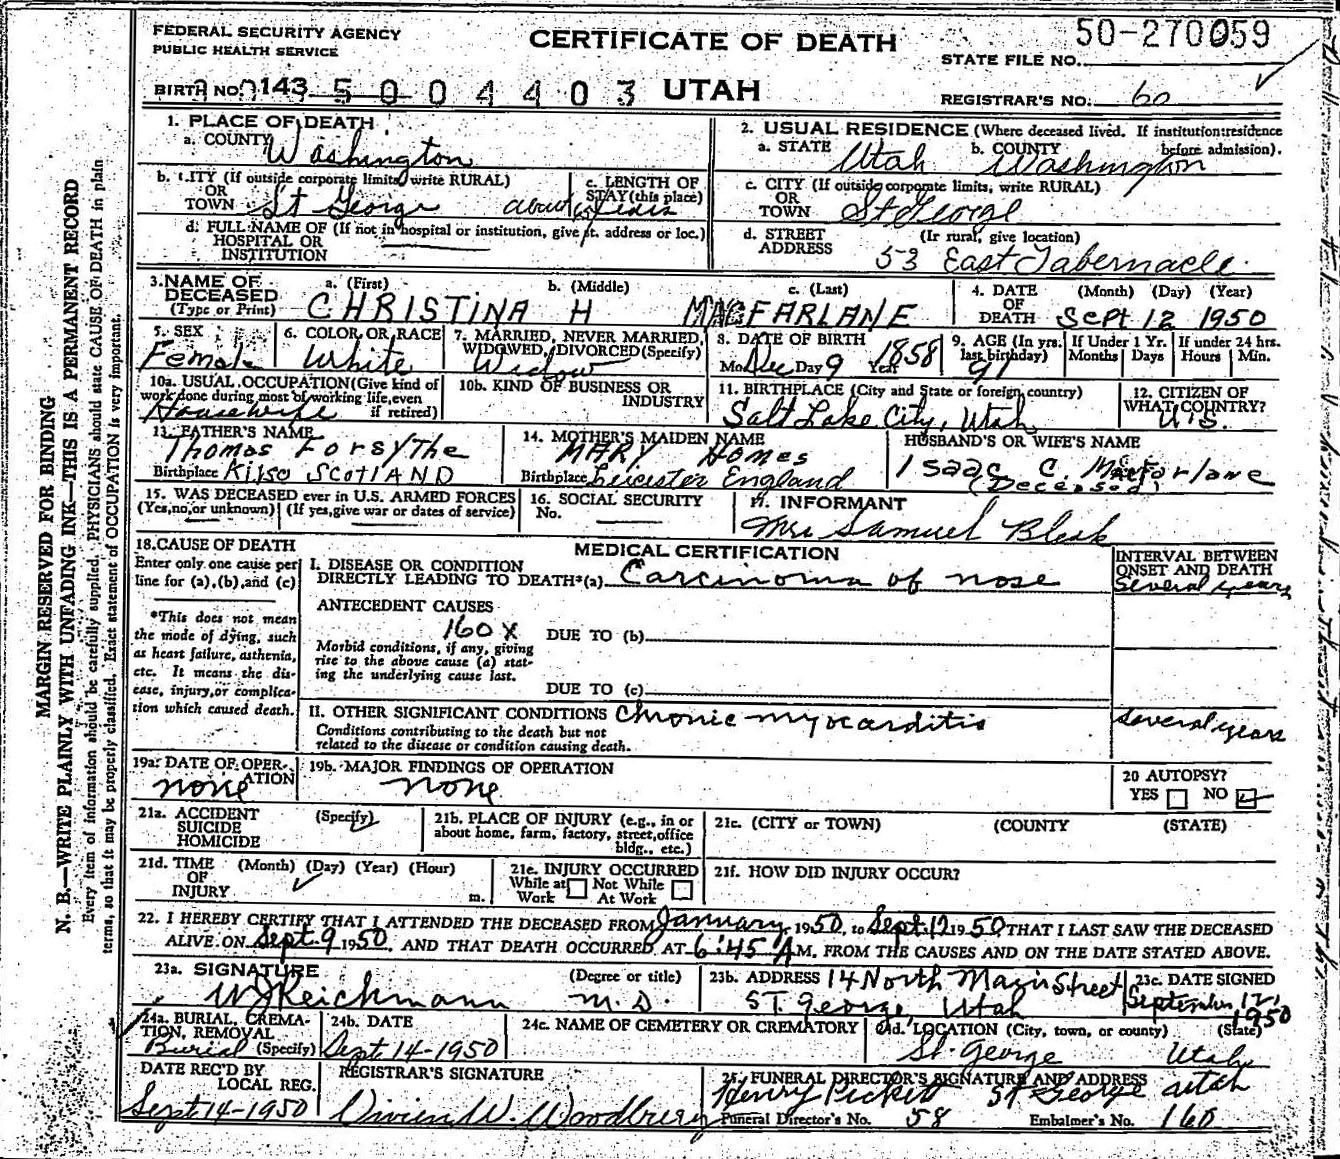 FEDERAL SECURITY AGENCY
PUBLIC HEALTH SERVICE
CERTIFICATE OF DEATH
50-270059
STATE FILE NO.
BIRTH NO. 143 5004403 UTAH
REGISTRAR'S NO. 60
1. PLACE OF DEATH
a. COUNTY Washington
2. USUAL RESIDENCE (Where deceased lived. If institution: residence before admission).
a. STATE Utah b. COUNTY Washington
b. CITY (If outside corporate limits, write RURAL) OR TOWN St George
c. LENGTH OF STAY (this place) about years
c. CITY (If outside corporate limits, write RURAL) OR TOWN St George
d. FULL NAME OF (If not in hospital or institution, give st. address or loc.) HOSPITAL OR INSTITUTION
d. STREET ADDRESS (If rural, give location) 53 East Tabernacle
3. NAME OF DECEASED (Type or Print)
a. (First) CHRISTINA b. (Middle) H c. (Last) MACFARLANE
4. DATE OF DEATH (Month) (Day) (Year) Sept 12 1950
5. SEX Female
6. COLOR OR RACE White
7. MARRIED, NEVER MARRIED, WIDOWED, DIVORCED (Specify) Widow
8. DATE OF BIRTH Mo. Dec Day 9 Year 1858
9. AGE (In yrs. last birthday) 91
If Under 1 Yr. Months Days
If under 24 hrs. Hours Min.
10a. USUAL OCCUPATION (Give kind of work done during most of working life, even if retired) Housewife
10b. KIND OF BUSINESS OR INDUSTRY
11. BIRTHPLACE (City and State or foreign country) Salt Lake City, Utah
12. CITIZEN OF WHAT COUNTRY? U.S.
13. FATHER'S NAME Thomas Forsythe
Birthplace Kilso Scotland
14. MOTHER'S MAIDEN NAME MARY Homes
Birthplace Leicester England
HUSBAND'S OR WIFE'S NAME
Isaac C. Macfarlane
(Deceased)
15. WAS DECEASED ever in U.S. ARMED FORCES
(Yes, no, or unknown) (If yes, give war or dates of service)
16. SOCIAL SECURITY No.
17. INFORMANT
Mrs Samuel Bleak
18. CAUSE OF DEATH
Enter only one cause per line for (a), (b), and (c)
MEDICAL CERTIFICATION
INTERVAL BETWEEN ONSET AND DEATH
I. DISEASE OR CONDITION DIRECTLY LEADING TO DEATH*(a) Carcinoma of nose
Several years
*This does not mean the mode of dying, such as heart failure, asthenia, etc. It means the disease, injury, or complication which caused death.
ANTECEDENT CAUSES
160X DUE TO (b)
Morbid conditions, if any, giving rise to the above cause (a) stating the underlying cause last.
DUE TO (c)
II. OTHER SIGNIFICANT CONDITIONS Chronic myocarditis
Several years
Conditions contributing to the death but not related to the disease or condition causing death.
19a. DATE OF OPERATION none
19b. MAJOR FINDINGS OF OPERATION none
20 AUTOPSY? YES NO
21a. ACCIDENT SUICIDE HOMICIDE (Specify)
21b. PLACE OF INJURY (e.g., in or about home, farm, factory, street, office bldg., etc.)
21c. (CITY or TOWN) (COUNTY) (STATE)
21d. TIME OF INJURY (Month) (Day) (Year) (Hour) m.
21e. INJURY OCCURRED While at Work Not While At Work
21f. HOW DID INJURY OCCUR?
22. I HEREBY CERTIFY THAT I ATTENDED THE DECEASED FROM January 1950, to Sept. 12 1950 THAT I LAST SAW THE DECEASED
ALIVE ON Sept. 9 1950, AND THAT DEATH OCCURRED AT 6:45 A M. FROM THE CAUSES AND ON THE DATE STATED ABOVE.
23a. SIGNATURE (Degree or title) W J Reichmann M.D.
23b. ADDRESS 14 North Main Street St. George, Utah
23c. DATE SIGNED September 12, 1950
24a. BURIAL, CREMATION, REMOVAL (Specify) Burial
24b. DATE Sept. 14-1950
24c. NAME OF CEMETERY OR CREMATORY
24d. LOCATION (City, town, or county) (State) St. George Utah
DATE REC'D BY LOCAL REG. Sept 14-1950
REGISTRAR'S SIGNATURE Vivien W. Woodbury
25. FUNERAL DIRECTOR'S SIGNATURE AND ADDRESS Henry Pickett St George Utah
Funeral Director's No. 58 Embalmer's No. 160
MARGIN RESERVED FOR BINDING
N. B.—WRITE PLAINLY WITH UNFADING INK—THIS IS A PERMANENT RECORD
Every item of information should be carefully supplied. PHYSICIANS should state CAUSE OF DEATH in plain
terms, so that it may be properly classified. Exact statement of OCCUPATION is very important.